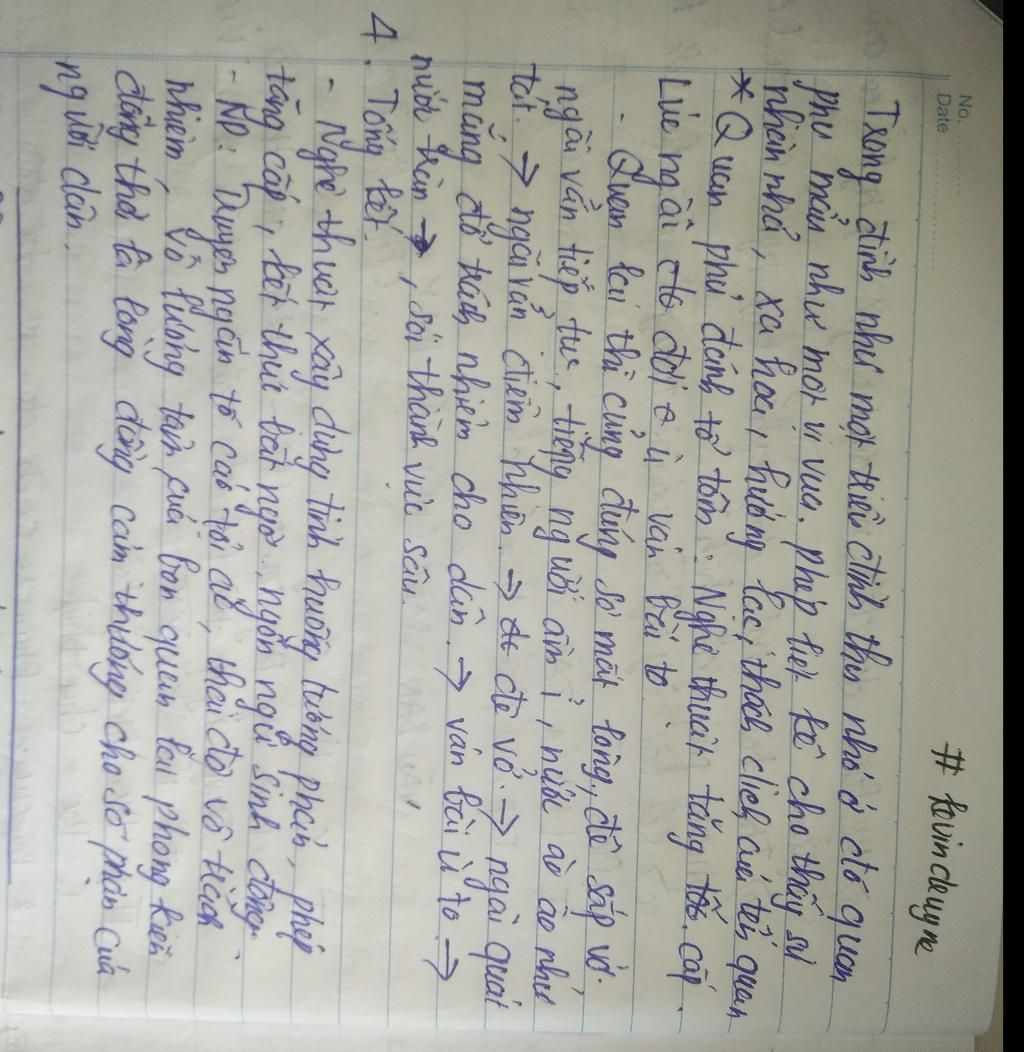 No.
Date
# kevinduyne
Trong đình như một triều đình thu nhỏ ở đó quan
phụ mẫu như một vị vua. phép liệt kê cho thấy sự
nhàn nhã, xa hoa, hưởng lạc, thách dịch của tên quan
* Quan phủ đánh tổ tôm: Nghệ thuật tăng cấp.
Lúc ngài đó đợi ù ván bài to.
- Quan lại thì cũng đúng sờ mất lòng, đê sắp vỡ.
ngài vẫn tiếp tục, tiếng người ầm ỉ, nước ào ào như
tát → ngài vẫn điềm nhiên. → đê vỡ. → ngài quát
mắng đổ trách nhiệm cho dân. → ván bài ù to →
nước tràn →, sói thành vực sâu.
4. Tổng kết.
- Nghệ thuật xây dựng tình huống tương phản, phép
tăng cấp, kết thúc bất ngờ, ngôn ngữ sinh động.
- ND: Truyện ngắn tố cáo tội ác, thái độ vô trách
nhiệm, vô lương tâm của bọn quan lại phong kiến
đồng thời là lòng đồng cảm thương cho số phận của
người dân.